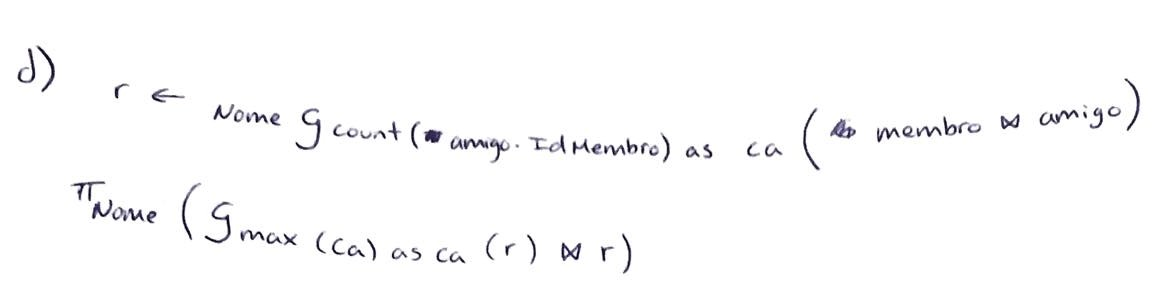 d) r ← Nome G count(amigo.IdMembro) as ca (membro ⋈ amigo)
π Nome (G max (ca) as ca (r) ⋈ r)